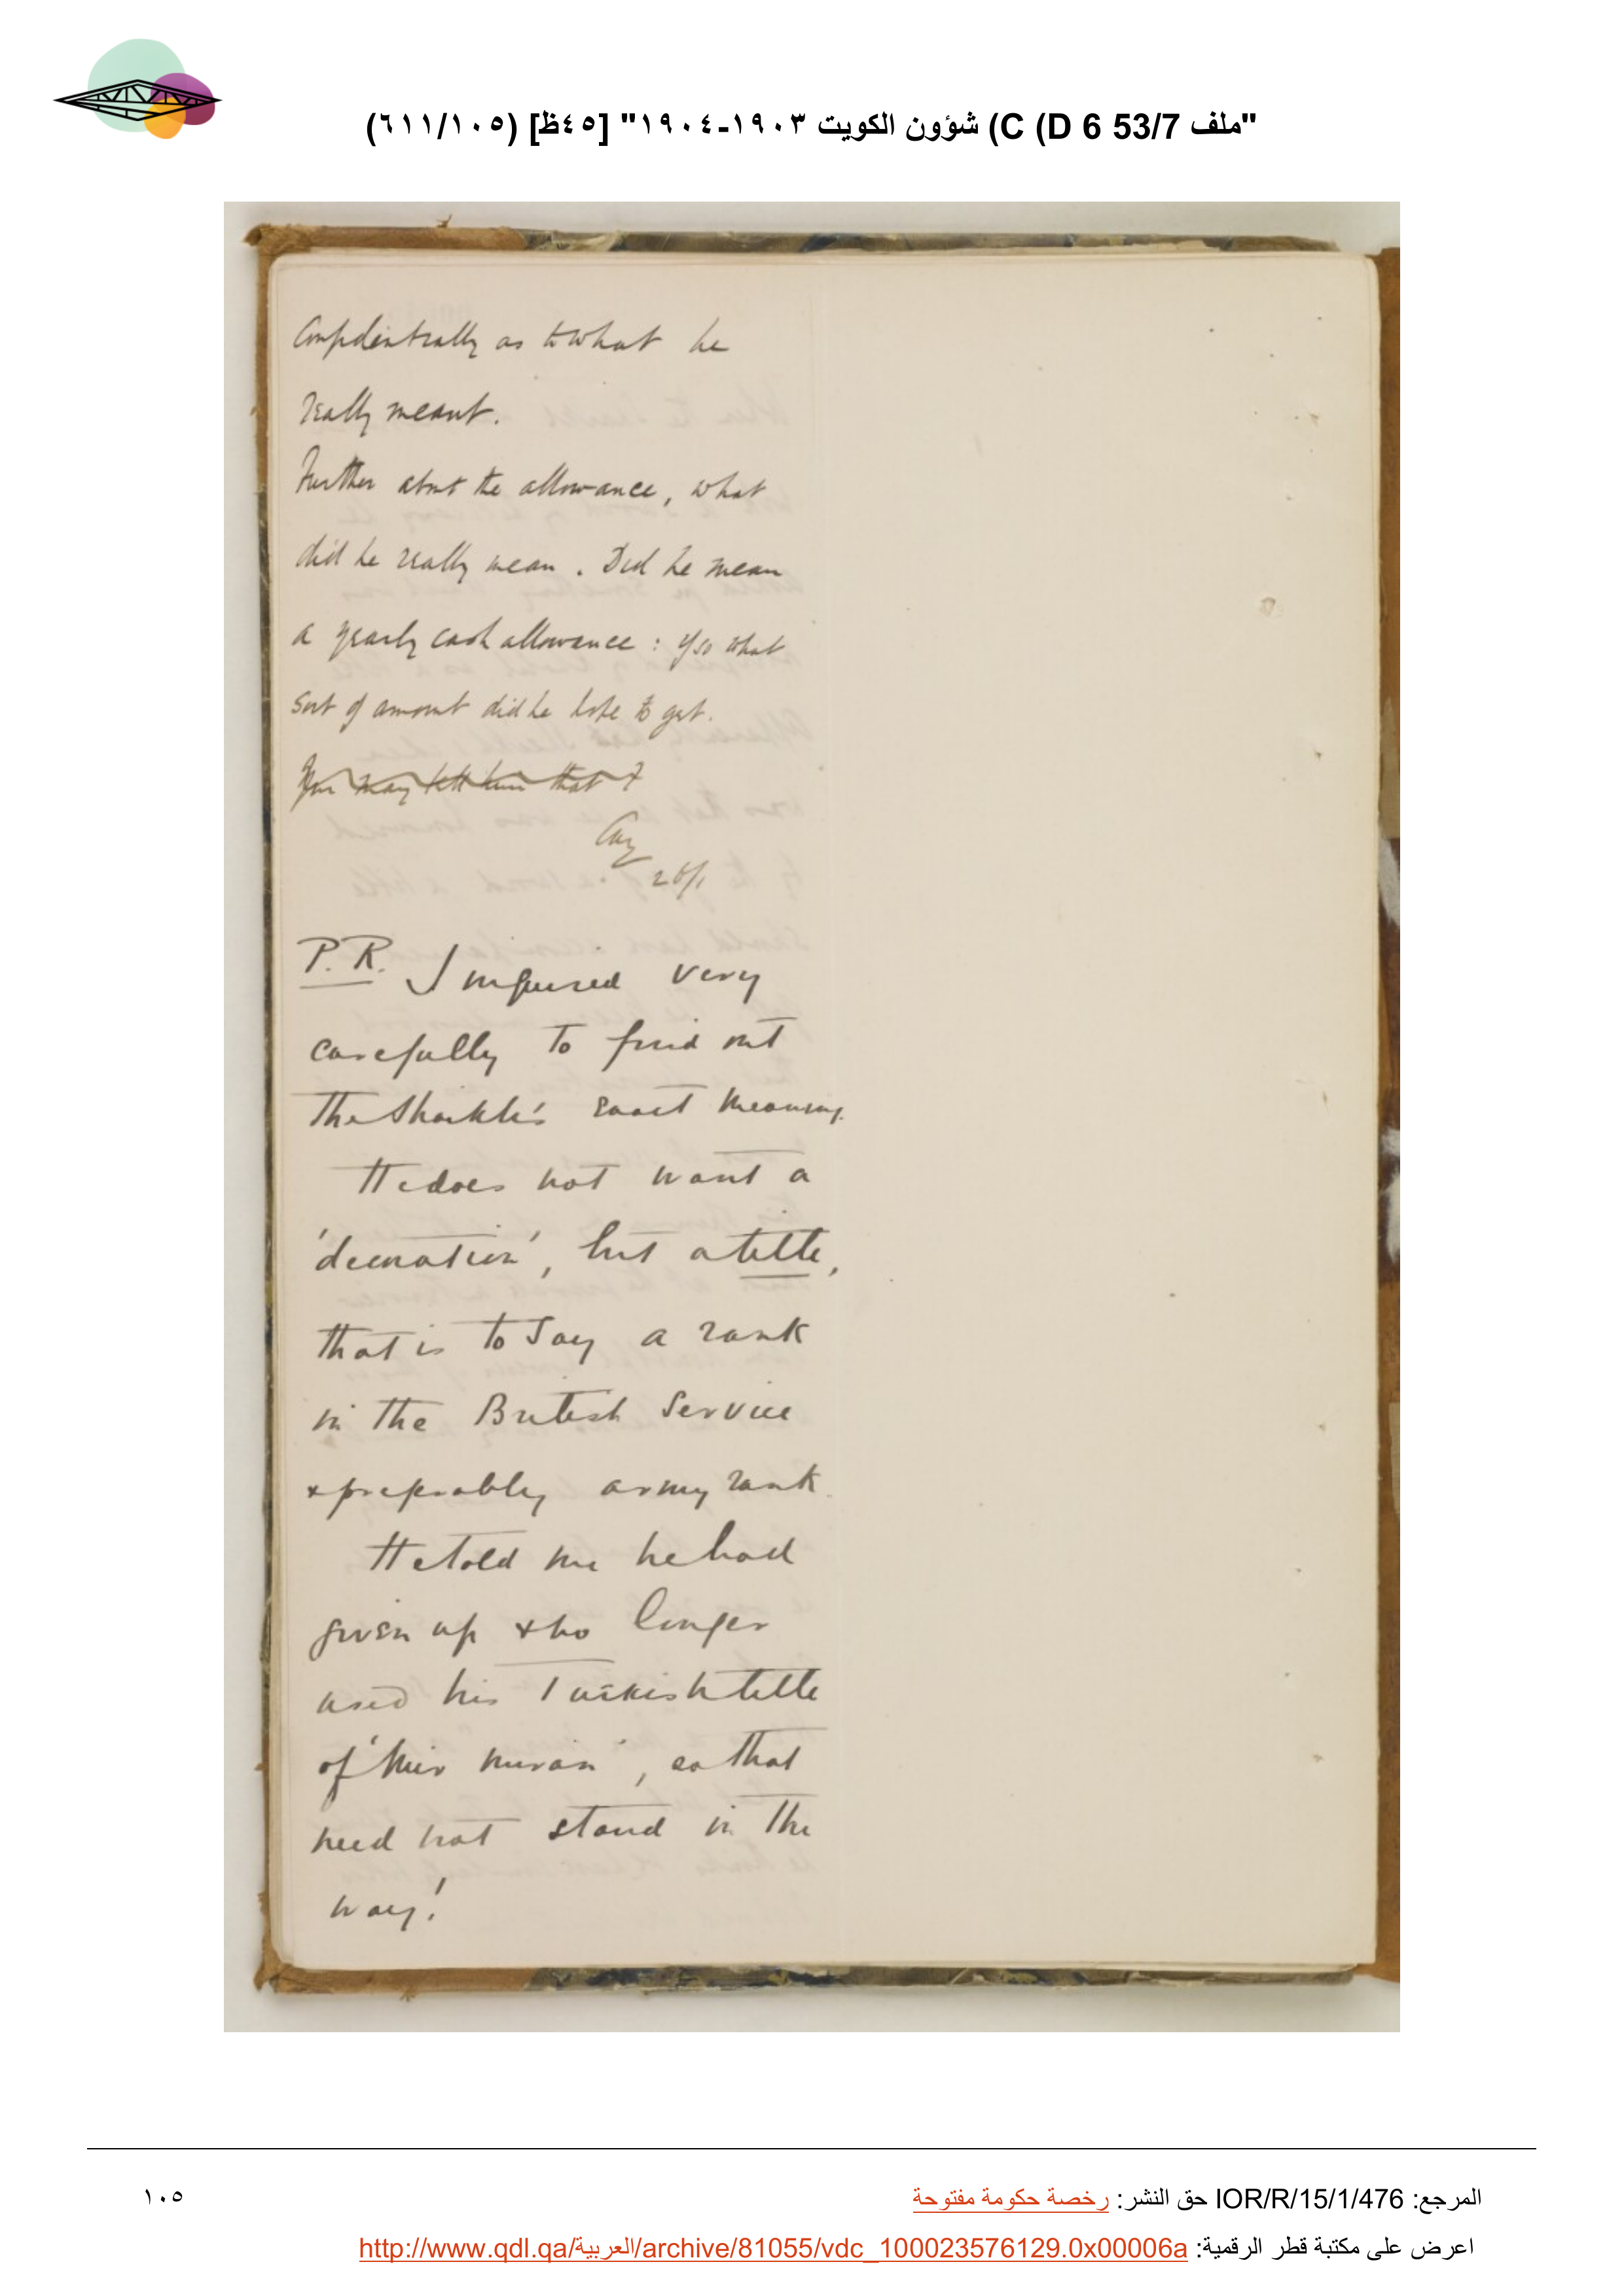 "ملف 53/7 C (D 6) شؤون الكويت ١٩٠٣-١٩٠٤" [٤٥ظ] (٦١١/١٠٥)
Confidentially as to what he
really meant.
Further about the allowance, what
did he really mean. Did he mean
a yearly cash allowance: if so what
sort of amount did he hope to get.
You may tell him that I
26/1
P.R. I inquired very
carefully to find out
the Shaikh's exact meaning.
He does not want a
'decoration', but a title,
that is to say a rank
in the British Service
& preferably army rank.
He told me he had
given up & no longer
used his Turkish title
of 'Mir Miran', so that
need not stand in the
way!
المرجع: IOR/R/15/1/476 حق النشر: رخصة حكومة مفتوحة
١٠٥
اعرض على مكتبة قطر الرقمية: http://www.qdl.qa/العربية/archive/81055/vdc_100023576129.0x00006a